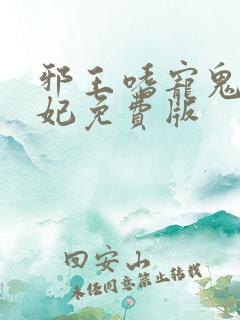 邪王嗜寵鬼
妃免費版
回安山
未经同意禁止转载